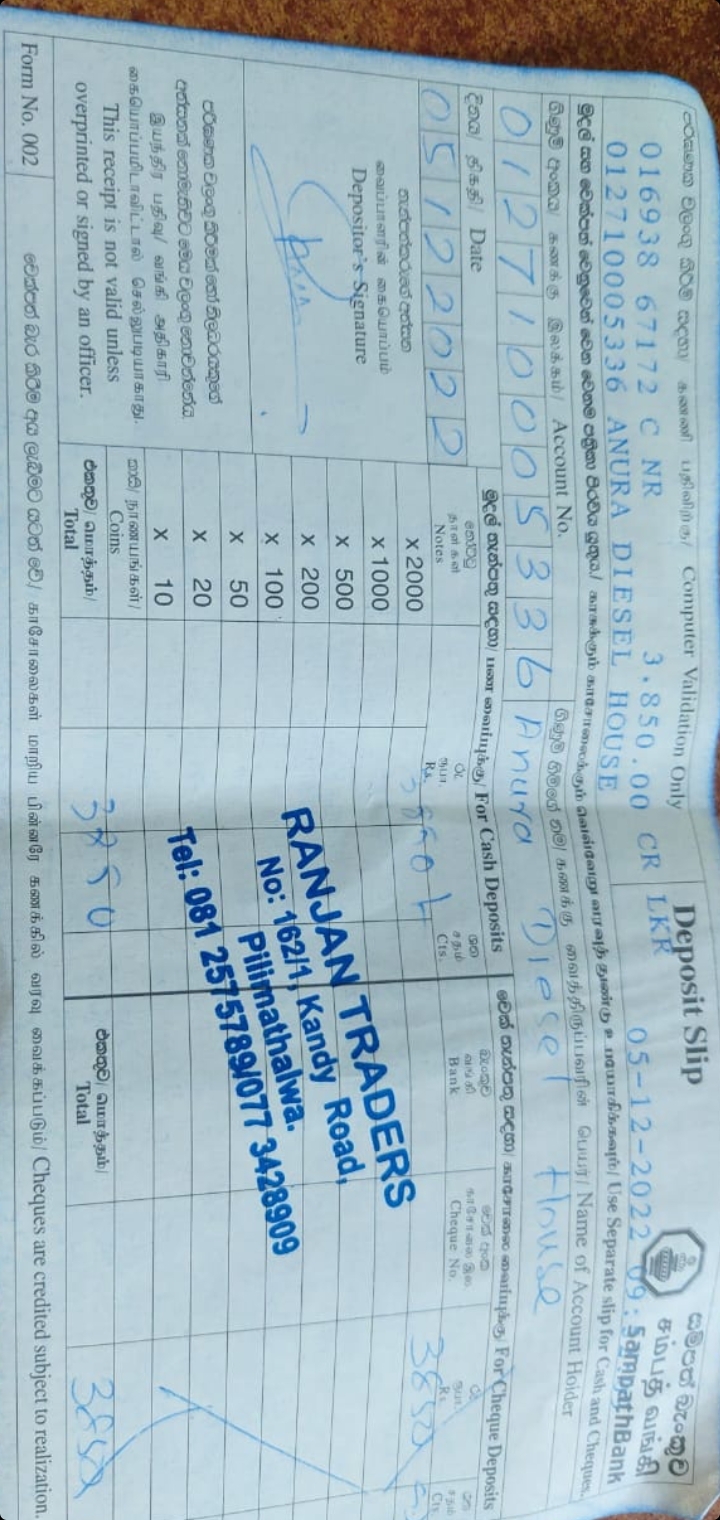 පරිගණක වලංගු කිරීම සඳහා/ கணனி பதிவிற்கு/ Computer Validation Only
Deposit Slip
සම්පත් බැංකුව
சம்பத் வங்கி
SampathBank
016938 67172 C NR 3,850.00 CR LKR 05-12-2022 09:
012710005336 ANURA DIESEL HOUSE
Use Separate slip for Cash and Cheques.
ගිණුම් අංකය/ கணக்கு இலக்கம்/ Account No.
ගිණුම් හිමියාගේ නම/ கணக்கு வைத்திருப்பவரின் பெயர்/ Name of Account Holder
012710005336
Anura Diesel House
දිනය/ திகதி/ Date
05122022
මුදල් තැන්පතු සඳහා/ பண வைப்புக்கு/ For Cash Deposits
චෙක් තැන්පතු සඳහා/ காசோலை வைப்புக்கு/ For Cheque Deposits
නෝට්ටු
தாள்கள்
Notes
රු.
ரூபா.
Rs.
ශත
சதம்
Cts.
බැංකුව
வங்கி
Bank
චෙක් අංක
காசோலை இல.
Cheque No.
රු.
ரூபா.
Rs.
ශත
சதம்
Cts.
තැන්පත්කරුගේ අත්සන
வைப்பாளரின் கையொப்பம்
Depositor's Signature
x 2000
x 1000
x 500
x 200
x 100
x 50
x 20
x 10
3850
කාසි/ நாணயங்கள்/
Coins
එකතුව/ மொத்தம்/
Total
3850
එකතුව/ மொத்தம்/
Total
3850
RANJAN TRADERS
No: 162/1, Kandy Road,
Pilimathalwa.
Tel: 081 2575789/077 3428909
இயந்திர பதிவு/ வங்கி அதிகாரி
கையொப்பமிடாவிட்டால் செல்லுபடியாகாது.
This receipt is not valid unless
overprinted or signed by an officer.
Form No. 002
චෙක්පත් බැර කිරීම් අය ලැබීමට යටත් වේ/ காசோலைகள் மாறிய பின்னரே கணக்கில் வரவு வைக்கப்படும்/ Cheques are credited subject to realization.